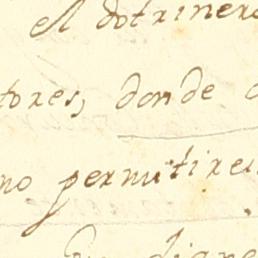 el dotrinero
tores, donde
no permitire
digne